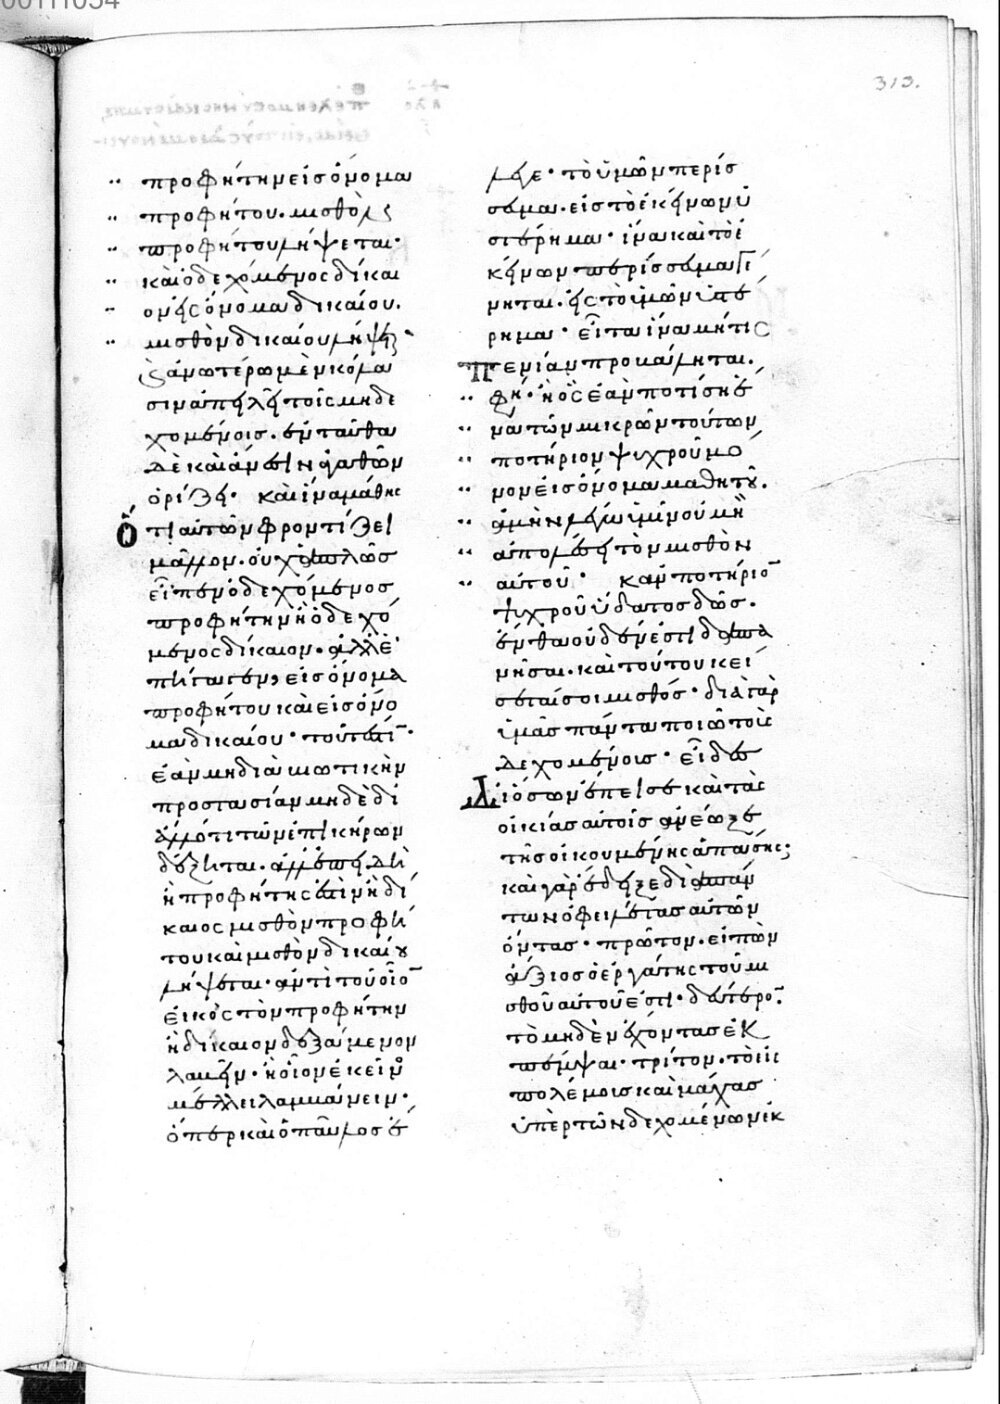 313.
προφήτην εἰς ὄνομα
προφήτου. μισθὸν
προφήτου λήψεται·
καὶ ὁ δεχόμενος δίκαι
ον εἰς ὄνομα δικαίου.
μισθὸν δικαίου λήψεται·
ἀνωτέρω μὲν κόλα
σιν ἀπειλεῖ τοῖς μὴ δε
χομένοις. ἐνταῦθα
δὲ καὶ ἀμοιβὴν ἀγαθῶν
ὁρίζει· καὶ ἵνα μάθῃς
ὅτι αὐτῶν φροντίζει
μᾶλλον. οὐχ ἁπλῶς
εἶπεν ὁ δεχόμενος
προφήτην ἢ ὁ δεχό
μενος δίκαιον. ἀλλ' ἐ
πήγαγεν, εἰς ὄνομα
προφήτου καὶ εἰς ὄνο
μα δικαίου· τουτέστιν·
ἐὰν μὴ διὰ βιωτικὴν
προστασίαν μηδὲ δι'
ἄλλό τι τῶν ἐπικήρων
δέξηται. ἀλλ' ἐπειδὴ
ἢ προφήτης ἐστὶν ἢ δί
καιος μισθὸν προφή
του καὶ μισθὸν δικαίου
λήψεται· ἀντὶ τοῦ οἷον
εἰκὸς τὸν προφήτην
ἢ δίκαιον δεξάμενον
λαβεῖν· ἢ οἷον ἐκεῖνος
μέλλει λαμβάνειν·
ὅπερ καὶ ὁ παῦλος ἔ
λεγε· τὸ ὑμῶν περίσ
σευμα. εἰς τὸ ἐκείνων ὑ
στέρημα· ἵνα καὶ τὸ ἐ
κείνων περίσσευμα γέ
νηται. εἰς τὸ ὑμῶν ὑστέ
ρημα· εἶτα ἵνα μή τις
πενίαν προβάληται.
φησίν· ἢ ὃς ἐὰν ποτίσῃ ἕ
να τῶν μικρῶν τούτων
ποτήριον ψυχροῦ μό
νον εἰς ὄνομα μαθητοῦ.
ἀμὴν λέγω ὑμῖν οὐ μὴ
ἀπολέσῃ τὸν μισθὸν
αὐτοῦ· κἂν ποτήριον
ψυχροῦ ὕδατος δῷς.
ἔνθα οὐδέν ἐστι δαπα
νῆσαι. καὶ τούτου κεί
σεταί σοι μισθός· διὰ γὰρ
ὑμᾶς πάντα ποιῶ τοὺς
δεχομένοις· εἶδες
δι' ὅσων ἔπεισε καὶ τὰς
οἰκίας αὐτοῖς ἀνέῳξε
τῆς οἰκουμένης ἁπάσης;
καὶ γὰρ ἔδειξε διὰ πάν
των ὀφειλέτας αὐτῶν
ὄντας· πρῶτον. εἰπὼν
ἄξιος ὁ ἐργάτης τοῦ μι
σθοῦ αὐτοῦ ἐστι· δεύτερον.
τὸ μηδὲν ἔχοντας ἐκ
πέμψαι· τρίτον. τὸ εἰς
πολέμους καὶ μάχας
ὑπὲρ τῶν δεχομένων ἐκ